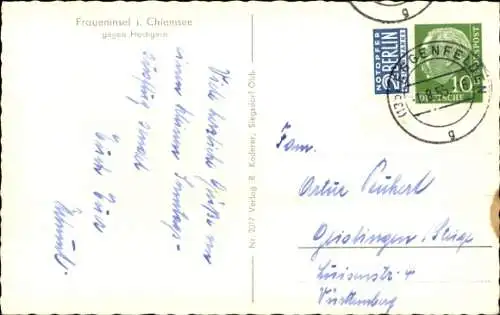 Fraueninsel i. Chiemsee
gegen Hochgern
Viele herzliche Grüße von
einem kleinen Sonntags-
ausflug sendet
Euch Eure
Nr. 2017 Verlag R. Koderer, Siegsdorf Obb.
NOTOPFER
2 BERLIN
STEUERMARKE
DEUTSCHE
POST
10
EGGENFELDEN
Fam.
Artur Peukert
Geislingen / Steige
Luisenstr. 4
Württemberg